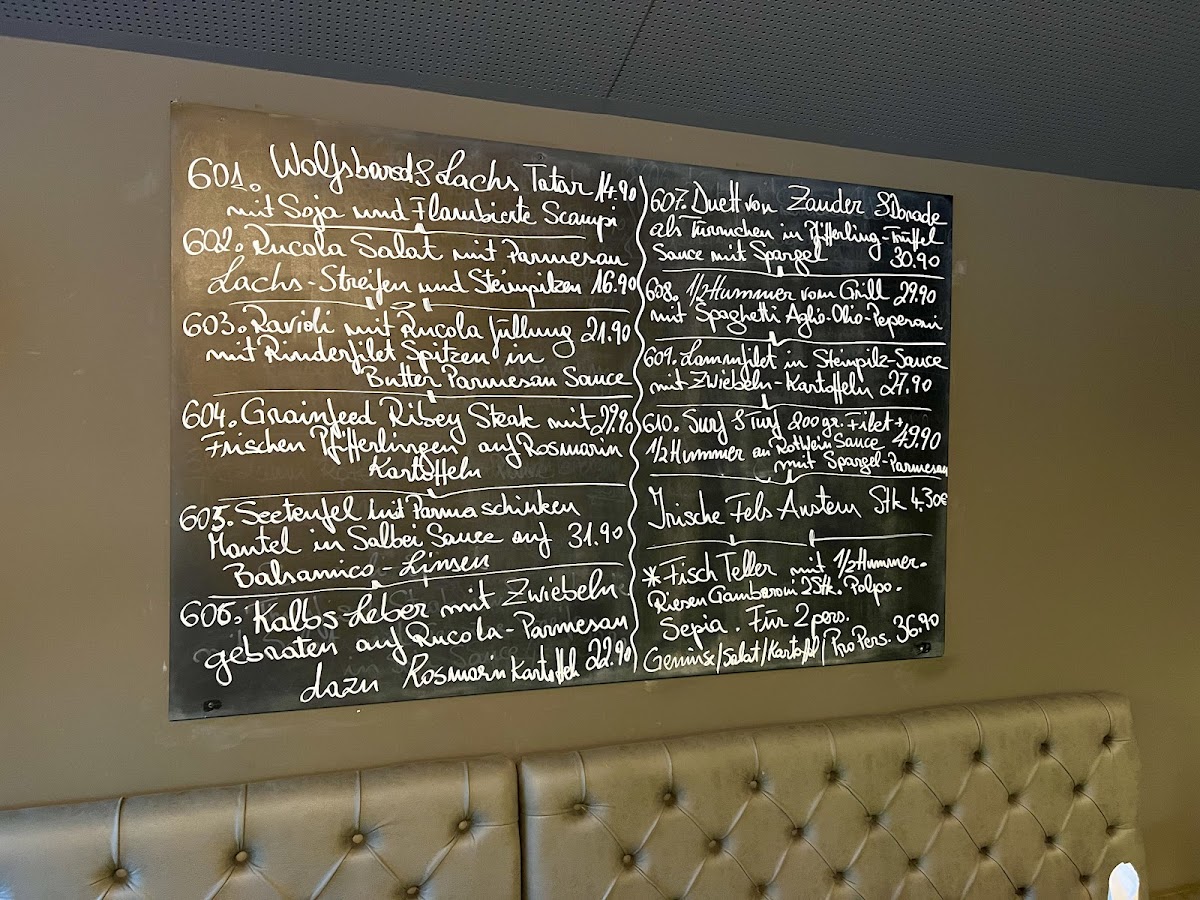 601. Wolfsbarsch & Lachs Tatar 14.90
mit Soja und Flambierte Scampi
602. Rucola Salat mit Parmesan
Lachs-Streifen und Steinpilzen 16.90
603. Ravioli mit Rucola füllung 21.90
mit Rinderfilet Spitzen in
Butter Parmesan Sauce
604. Grainfeed Ribey Steak mit 29.90
Frischen Pfifferlingen auf Rosmarin
Kartoffeln
605. Seeteufel mit Parma schinken
Mantel in Salbei Sauce auf 31.90
Balsamico-Linsen
606. Kalbs Leber mit Zwiebeln
gebraten auf Rucola-Parmesan
dazu Rosmarin Kartoffeln 22.90
607. Duett von Zander & Dorade
als Türmchen in Pfifferling-Trüffel
Sauce mit Spargel 30.90
608. 1/2 Hummer vom Grill 29.90
mit Spaghetti Aglio-Olio-Peperoni
609. Lammfilet in Steinpilz-Sauce
mit Zwiebeln-Kartoffeln 27.90
610. Surf & Turf 200 gr. Filet +
1/2 Hummer an Rotwein Sauce 49.90
mit Spargel-Parmesan
Irische Fels Austern Stk 4.30€
* Fisch Teller mit 1/2 Hummer.
Riesen Gamberoni 2 Stk. Polpo.
Sepia. Für 2 pers.
Gemüse/Salat/Kartofl/Pro Pers. 36.90